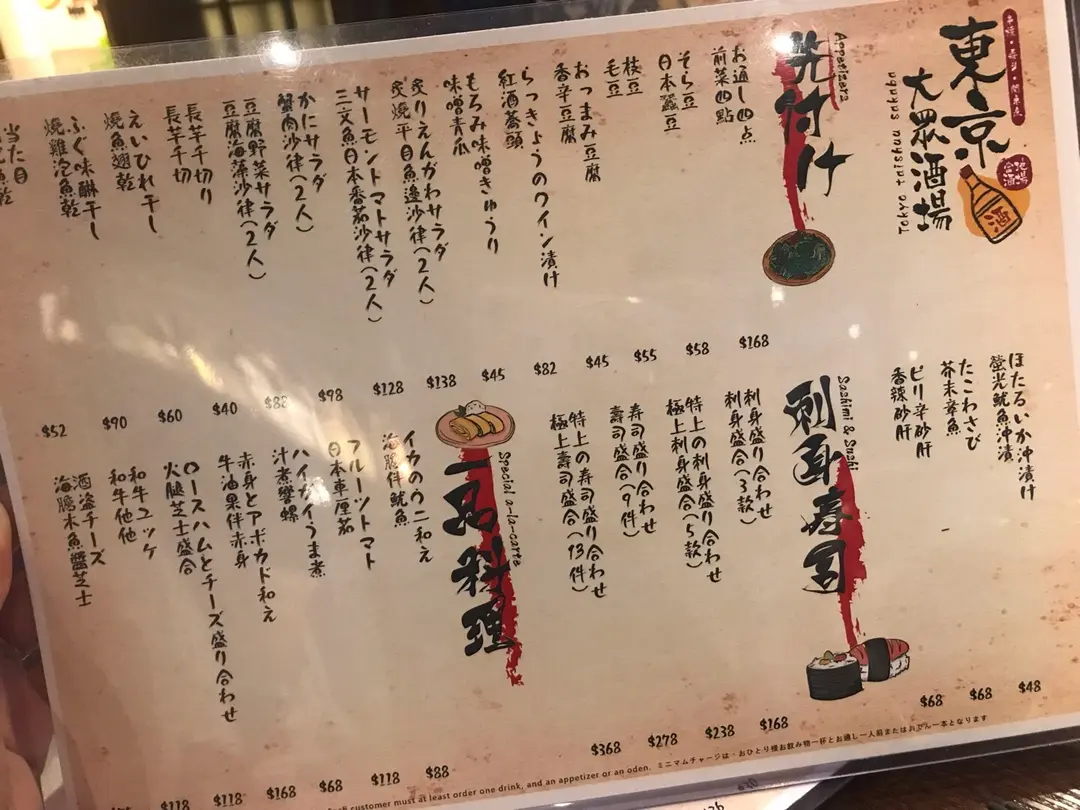 串燒・壽司・関東煮
東京
大眾酒場
Tokyo taishu sakaba
酒
先付け
Appetizers
お通し四点
前菜四點
$168
そら豆
日本蠶豆
$58
枝豆
毛豆
$55
おつまみ豆腐
香辛豆腐
$45
らっきょうのワイン漬け
紅酒蕎頭
$82
もろみ味噌きゅうり
味噌青瓜
$45
炙りえんがわサラダ
炙燒平目魚邊沙律(2人)
$138
サーモントマトサラダ
三文魚日本番茄沙律(2人)
$128
かにサラダ
蟹肉沙律(2人)
$98
豆腐野菜サラダ
豆腐海藻沙律(2人)
$88
長芋千切り
長芋千切
$40
えいひれ干し
燒魚翅乾
$60
ふぐ味醂干し
燒雞泡魚乾
$90
当た目
$52
ほたるいか沖漬け
螢光魷魚沖漬
$48
たこわさび
芥末章魚
$68
ピリ辛砂肝
香辣砂肝
$68
刺身寿司
Sashimi & Sushi
刺身盛り合わせ
刺身盛合(3款)
$168
特上の刺身盛り合わせ
極上刺身盛合(5款)
$238
寿司盛り合わせ
壽司盛合(9件)
$278
特上の寿司盛り合わせ
極上壽司盛合(13件)
$368
一品料理
Special a-la-carte
イカのウニ和え
海膽伴魷魚
$88
フルーツトマト
日本車厘茄
$118
ハイガイうま煮
汁煮螺
$68
赤身とアボカド和え
牛油果伴赤身
$168
ロースハムとチーズ盛り合わせ
火腿芝士盛合
$118
和牛ユッケ
和牛他他
$118
酒盗チーズ
海膽木魚醬芝士
customer must at least order one drink, and an appetizer or an oden. ミニマムチャージは・おひとり様お飲み物一杯とお通し一人前またはおでん一本となります